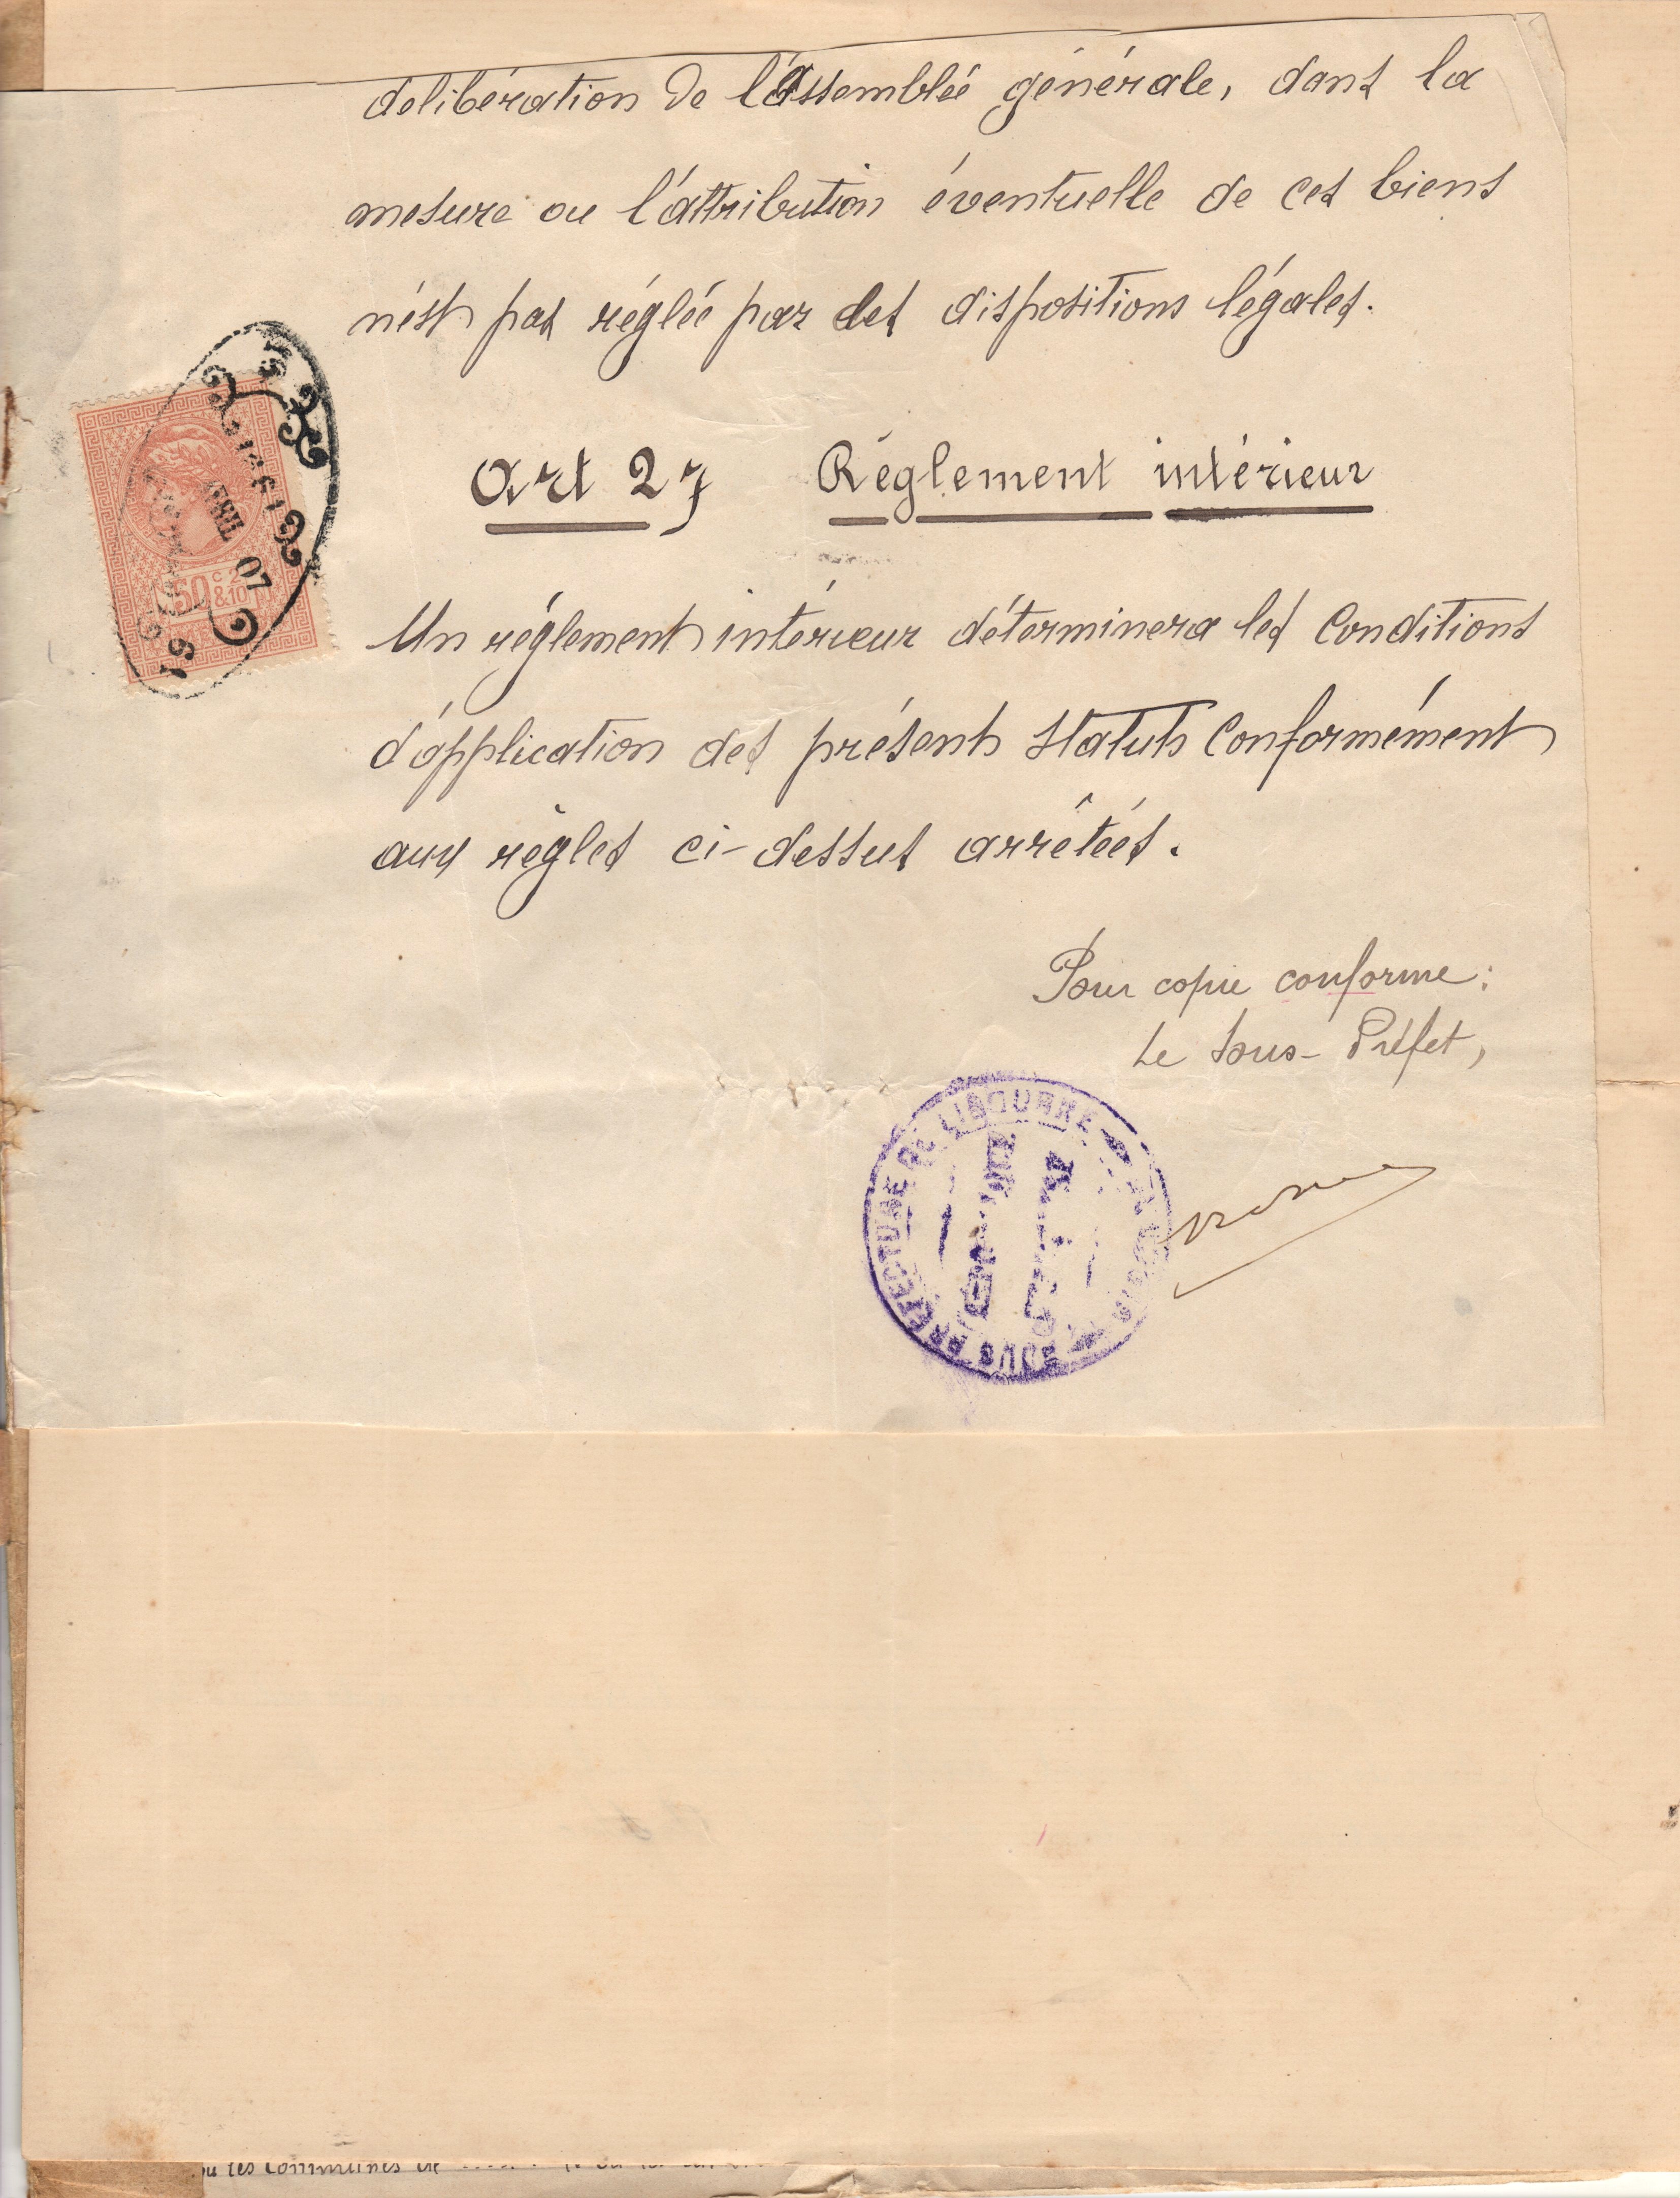 délibération de l'assemblée générale, dans la
mesure ou l'attribution éventuelle de ces biens
n'est pas réglée par des dispositions légales.
Art 27 Réglement intérieur
Un réglement intérieur déterminera les Conditions
d'application des présents statuts Conformément
aux règles ci-dessus arrêtées.
Pour copie conforme:
Le Sous-Préfet,
SOUS PRÉFECTURE DE LIBOURNE
50 c 2
&10
07
ou les communes de